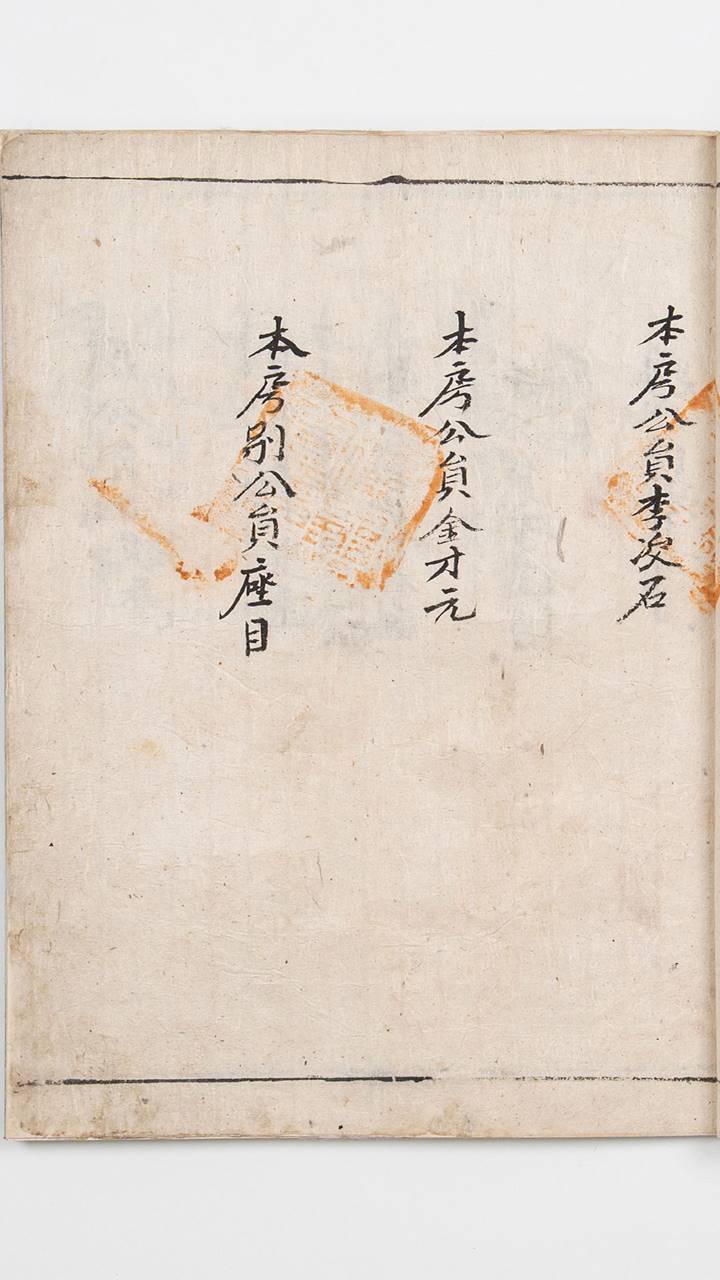 本房公員李次石
本房公員金才元
本房別公員座目